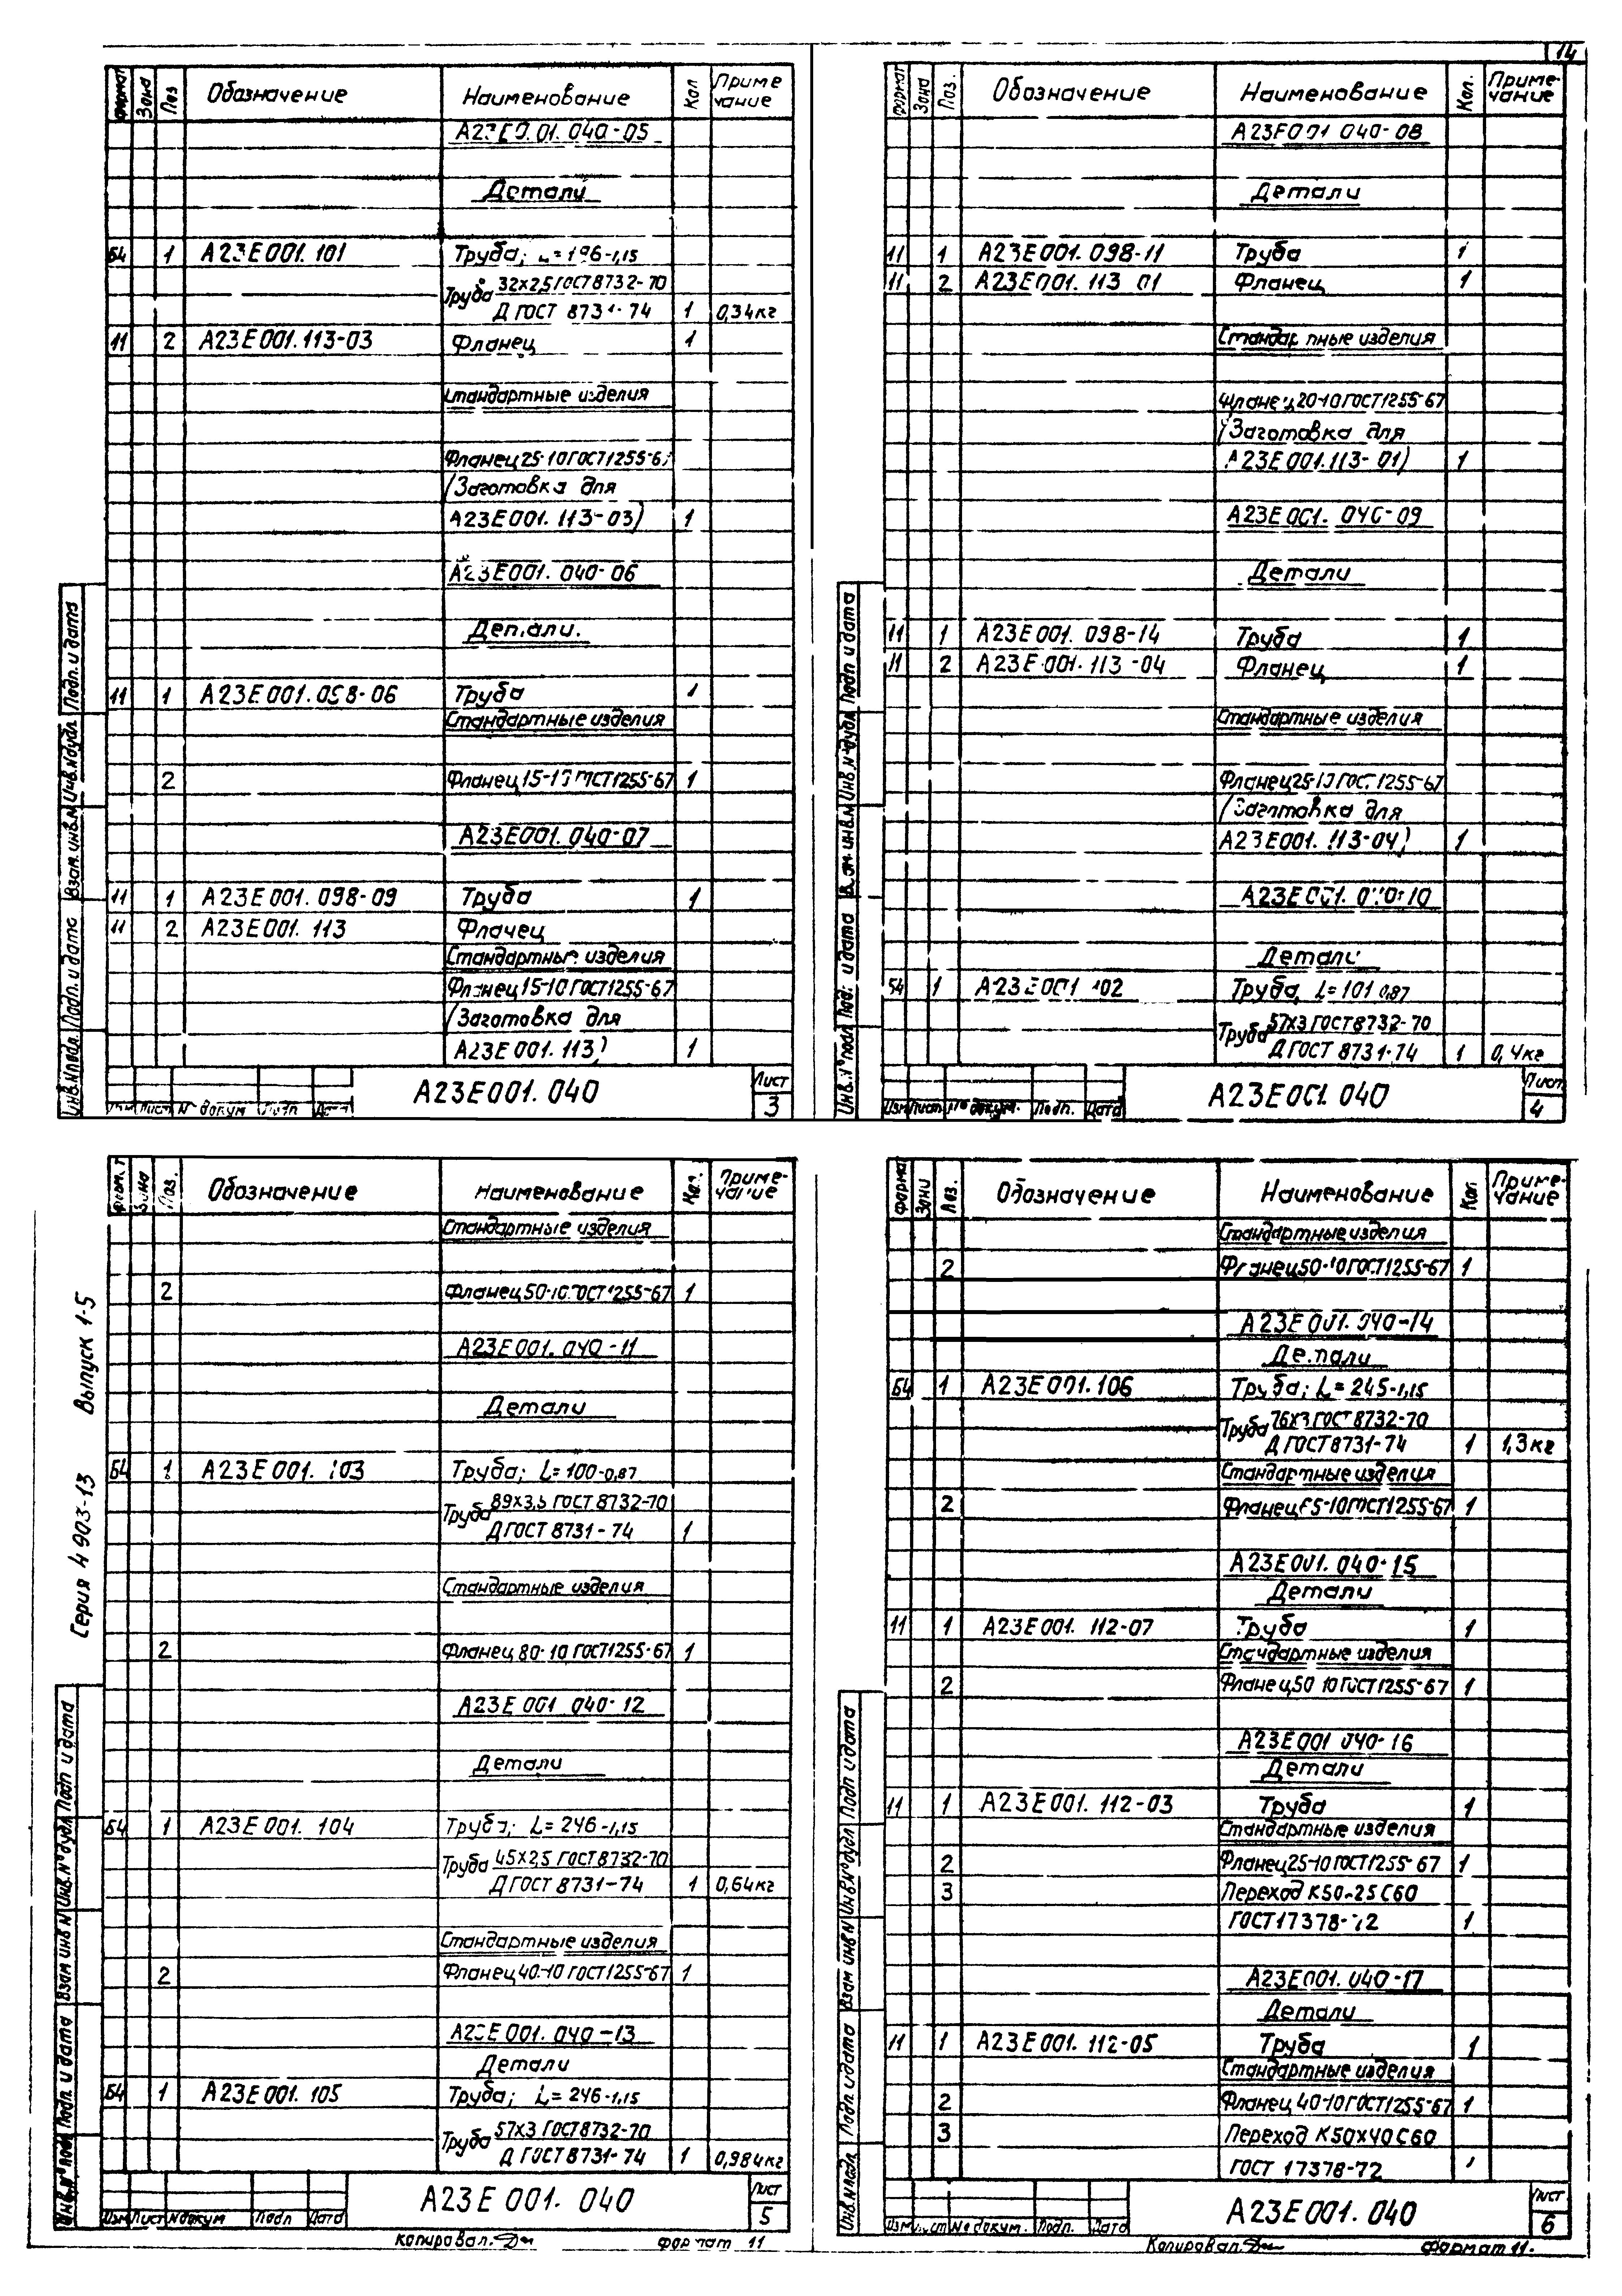 14
Формат Зона Поз Обозначение Наименование Кол Приме чание
А23Е001.040-05
Детали
Б4 1 А23Е001.101 Труба; L=196-1,15
Труба 32х2,5 ГОСТ 8732-70
Д ГОСТ 8731-74 1 0,34кг
11 2 А23Е001.113-03 Фланец 1
Стандартные изделия
Фланец 25-10 ГОСТ 1255-67
(Заготовка для
А23Е001.113-03) 1
А23Е001.040-06
Детали.
11 1 А23Е001.098-06 Труба 1
Стандартные изделия
2 Фланец 15-10 ГОСТ 1255-67 1
А23Е001.040-07
11 1 А23Е001.098-09 Труба 1
11 2 А23Е001.113 Фланец
Стандартные изделия
Фланец 15-10 ГОСТ 1255-67
(Заготовка для
А23Е001.113) 1
Инв.№подл. Подп. и дата Взам. инв.№ Инв.№дубл. Подп. и дата
Изм Лист № докум Подп Дата
А23Е001.040
Лист
3
Формат Зона Поз. Обозначение Наименование Кол. Приме-чание
А23Е001.040-08
Детали
11 1 А23Е001.098-11 Труба 1
11 2 А23Е001.113 01 Фланец 1
Стандартные изделия
Фланец 20-10 ГОСТ 1255-67
(Заготовка для
А23Е001.113-01) 1
А23Е001.040-09
Детали
11 1 А23Е001.098-14 Труба 1
11 2 А23Е001.113-04 Фланец 1
Стандартные изделия
Фланец 25-10 ГОСТ 1255-67
(Заготовка для
А23Е001.113-04) 1
А23Е001.040-10
Детали
Б4 1 А23Е001.102 Труба, L=101 0,87
Труба 57х3 ГОСТ 8732-70
Д ГОСТ 8731-74 1 0,4кг
Инв.№подл. Подп. и дата Взам инв.№ Инв.№дубл Подп и дата
Изм Лист № докум. Подп. Дата
А23Е001.040
Лист
4
Серия 4 903-13 Выпуск 1-5
Формат Зона Поз. Обозначение Наименование Кол. Приме-чание
Стандартные изделия
2 Фланец 50-10 ГОСТ 1255-67 1
А23Е001.040-11
Детали
Б4 1 А23Е001.103 Труба; L=100-0,87
Труба 89х3,5 ГОСТ 8732-70
Д ГОСТ 8731-74 1
Стандартные изделия
2 Фланец 80-10 ГОСТ 1255-67 1
А23Е001 040-12
Детали
Б4 1 А23Е001.104 Труба; L=246-1,15
Труба 45х2,5 ГОСТ 8732-70
Д ГОСТ 8731-74 1 0,64кг
Стандартные изделия
2 Фланец 40-10 ГОСТ 1255-67 1
А23Е001.040-13
Детали
Б4 1 А23Е001.105 Труба; L=246-1,15
Труба 57х3 ГОСТ 8732-70
Д ГОСТ 8731-74 1 0,984кг
Инв.№подл Подп. и дата Взам инв № Инв.№дубл. Подп и дата
Изм Лист № докум Подп Дата
А23Е001.040
Лист
5
Копировал. формат 11
Формат Зона Поз. Обозначение Наименование Кол Приме-чание
Стандартные изделия
2 Фланец 50-10 ГОСТ 1255-67 1
А23Е001.040-14
Детали
Б4 1 А23Е001.106 Труба; L=245-1,15
Труба 76х3 ГОСТ 8732-70
Д ГОСТ 8731-74 1 1,3кг
Стандартные изделия
2 Фланец 65-10 ГОСТ 1255-67 1
А23Е001.040-15
Детали
11 1 А23Е001.112-07 Труба 1
Стандартные изделия
2 Фланец 50 10 ГОСТ 1255-67 1
А23Е001 040-16
Детали
11 1 А23Е001.112-03 Труба 1
Стандартные изделия
2 Фланец 25-10 ГОСТ 1255-67 1
3 Переход К50-25 С60
ГОСТ 17378-72 1
А23Е001.040-17
Детали
11 1 А23Е001.112-05 Труба 1
Стандартные изделия
2 Фланец 40-10 ГОСТ 1255-67 1
3 Переход К50х40 С60
ГОСТ 17378-72
Инв.№подл. Подп. и дата Взам инв № Инв.№дубл Подп и дата
Изм Лист № докум. Подп. Дата
А23Е001.040
Лист
6
Копировал. формат 11.